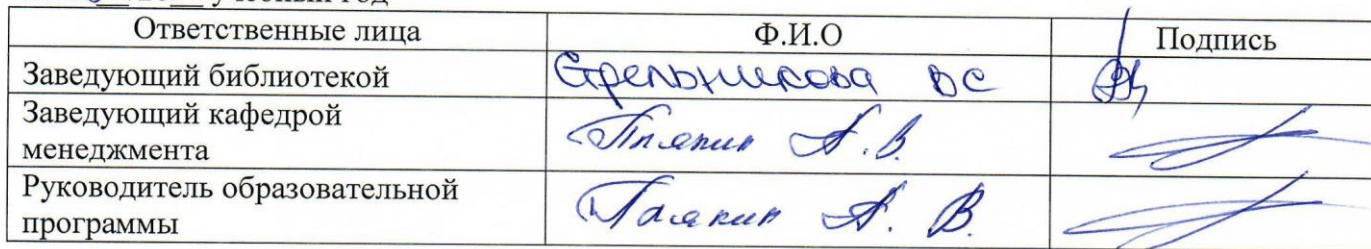 учебный год
Ответственные лица Ф.И.О Подпись
Заведующий библиотекой Стрельникова ВС
Заведующий кафедрой
менеджмента А.В.
Руководитель образовательной
программы А. В.